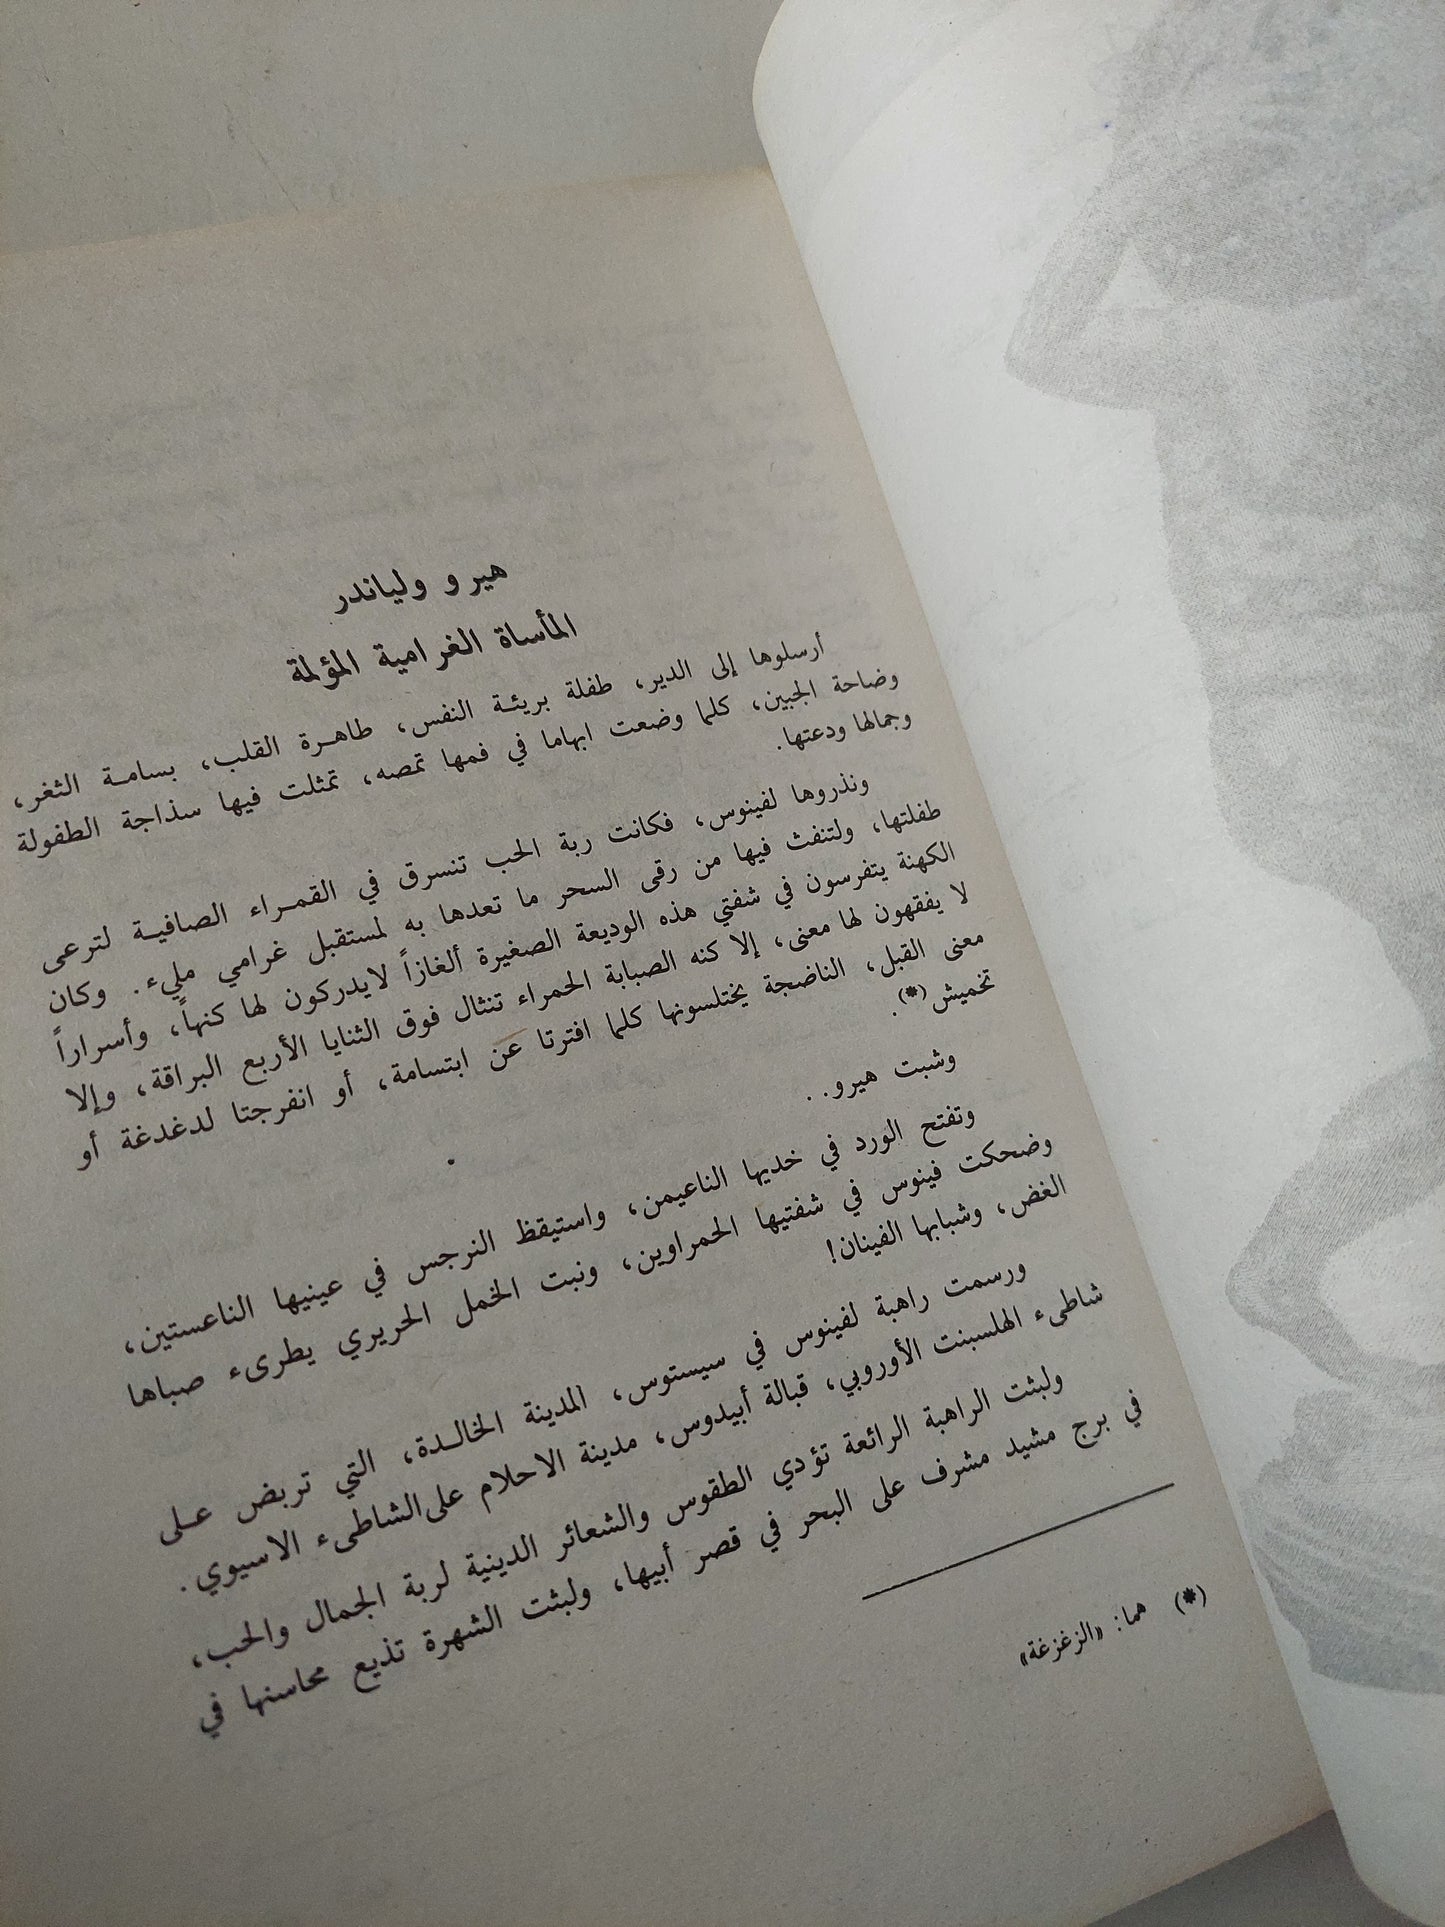 هيرو ولياندر
المأساة الغرامية المؤلمة
أرسلوها إلى الدير، طفلة بريئة النفس، طاهرة القلب، بسامة الثغر،
وضاحة الجبين، كلما وضعت ابهاما في فمها تمصه، تمثلت فيها سذاجة الطفولة
وجمالها ودعتها.
ونذروها لفينوس، فكانت ربة الحب تنسرق في القمراء الصافية لترعى
طفلتها، ولتنفث فيها من رقى السحر ما تعدها به لمستقبل غرامي مليء. وكان
الكهنة يتفرسون في شفتي هذه الوديعة الصغيرة ألغازاً لايدركون لها كنهاً، وأسراراً
لا يفقهون لها معنى، إلا كنه الصبابة الحمراء تنثال فوق الثنايا الأربع البراقة، وإلا
معنى القبل، الناضجة يختلسونها كلما افترتا عن ابتسامة، أو انفرجتا لدغدغة أو
تخميش(*).
وشبت هيرو..
وتفتح الورد في خديها الناعيمن، واستيقظ النرجس في عينيها الناعستين،
وضحكت فينوس في شفتيها الحمراوين، ونبت الخمل الحريري يطرىء صباها
الغض، وشبابها الفينان!
ورسمت راهبة لفينوس في سيستوس، المدينة الخالدة، التي تربض على
شاطىء الهلسبنت الأوروبي، قبالة أبيدوس، مدينة الاحلام على الشاطىء الاسيوي.
ولبثت الراهبة الرائعة تؤدي الطقوس والشعائر الدينية لربة الجمال والحب،
في برج مشيد مشرف على البحر في قصر أبيها، ولبثت الشهرة تذيع محاسنها في
(*) هما: «الزغزغة»